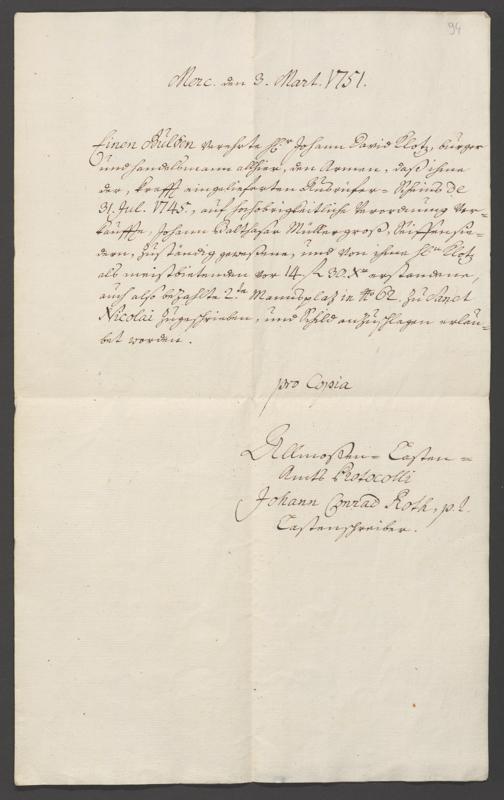 94
Merc. den 3. Mart. 1751.
Einen Gulden verehrte Hr. Johann David Klotz, burger
und handelsmann allhier, den Armen, daß ihme
der, krafft eingelieferten schein de
31. Jul. 1745., auf hochobrigkeitliche Verordnung ver-
kauffte, Johann Balthasar Müllergroß, Seiffensie-
dern, zuständig gewesene, und von ihme Hr. Klotz
als meistbietenden vor 14 f 30 Xr erstandene,
auch also bezahlte 2.te Mannsplatz in No 62. zu Sanct
Nicolai zugeschrieben, und Schild anzuschlagen erlau-
bet worden.
pro Copia
Allmoßen- Casten-
Amts Protocolli
Johann Conrad Roth, p. t.
Castenschreiber.